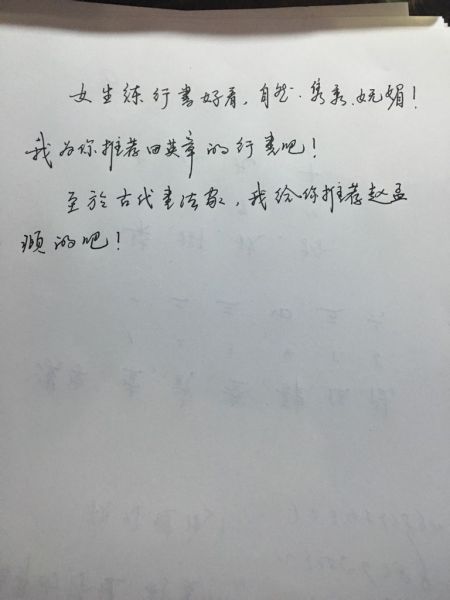 女生练行書好看，自然、隽秀、妩媚！
我为你推荐田英章的行書吧！
至於古代書法家，我给你推荐赵孟
頫的吧！